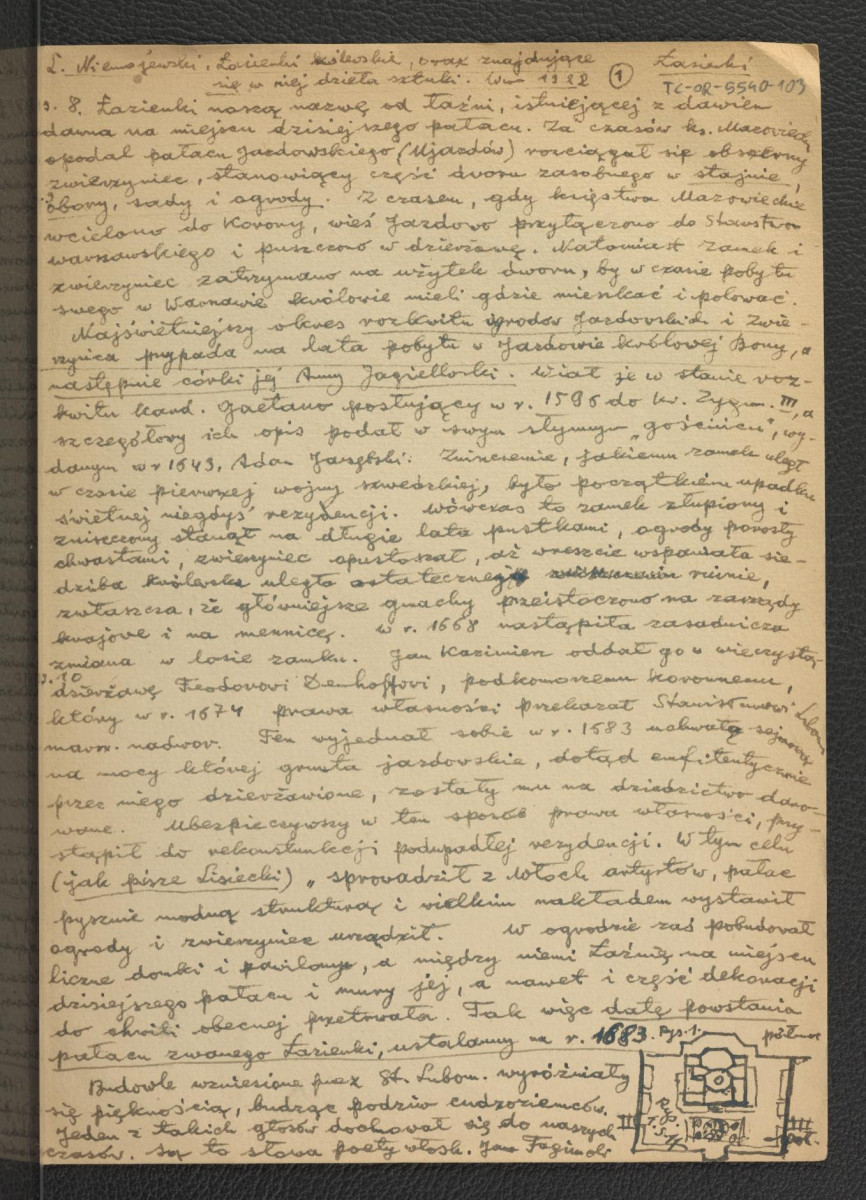 L. Niemojewski, Łazienki królewskie, oraz znajdujące
się w niej dzieła sztuki. W-wa 1922 (1) Łazienki
TC-OR-5540-103
s. 8. Łazienki noszą nazwę od łaźni, istniejącej z dawien
dawna na miejscu dzisiejszego pałacu. Za czasów ks. Mazowieckich
opodal pałacu Jazdowskiego (Ujazdów) rozciągał się obszerny
zwierzyniec, stanowiący część dworu zasobnego w stajnie,
obory, sady i ogrody. Z czasem, gdy księstwo Mazowieckie
wcielono do Korony, wieś Jazdowo przyłączono do Starostwa
warszawskiego i puszczono w dzierżawę. Natomiast zamek i
zwierzyniec zatrzymano na użytek dworu, by w czasie pobytu
swego w Warszawie królowie mieli gdzie mieszkać i polować.
Najświetniejszy okres rozkwitu ogrodów Jazdowskich i Zwie-
rzyńca przypada na lata pobytu w Jazdowie królowej Bony, a
następnie córki jej Anny Jagiellonki. Widział je w stanie roz-
kwitu kard. Gaetano posłujący w r. 1596 do kr. Zygm. III, a
szczegółowy ich opis podał w swym słynnym „gościńcu", wy-
danym w r 1643, Adam Jarzębski. Zniszczenie, jakiemu zamek uległ
w czasie pierwszej wojny szwedzkiej, było początkiem upadku
świetnej niegdyś rezydencji. Wówczas to zamek złupiony i
zniszczony stanął na długie lata pustkami, ogrody porosły
chwastami, zwierzyniec opustoszał, aż wreszcie wspaniała sie-
dziba królewska uległa ostatecznej ruinie,
zwłaszcza, że główniejsze gmachy przeistoczono na zarządy
krajowe i na mennicę. W r. 1668 nastąpiła zasadnicza
zmiana w losie zamku. Jan Kazimierz oddał go w wieczystą
s. 10
dzierżawę Teodorowi Denhoffowi, podkomorzemu koronnemu,
który w r. 1674 prawa własności przekazał Stanisławowi Lubom.
marsz. nadwor. Ten wyjednał sobie w r. 1683 uchwałę sejmową
na mocy której grunta jazdowskie, dotąd emfiteutycznie
przez niego dzierżawione, zostały mu na dziedzictwo daro-
wane. Ubezpieczywszy w ten sposób prawa własności, przy-
stąpił do rekonstrukcji podupadłej rezydencji. W tym celu
(jak pisze Lisiecki) „ sprowadził z Włoch artystów, pałac
pysznie modną strukturą i wielkim nakładem wystawił
ogrody i zwierzyniec urządził. W ogrodzie zaś pobudował
liczne domki i pawilony, a między niemi Łaźnię na miejscu
dzisiejszego pałacu i mury jej, a nawet i część dekoracji
do chwili obecnej przetrwała. Tak więc datę powstania
pałacu zwanego Łazienki, ustalamy na r. 1683. Rys. 1. północ
Budowle wzniesione przez St. Lubom. wyróżniały
się pięknością, budząc podziw cudzoziemców.
Jeden z takich głosów dochował się do naszych
czasów. Są to słowa poety włosk. Jana
III
Rys.
III
poł.